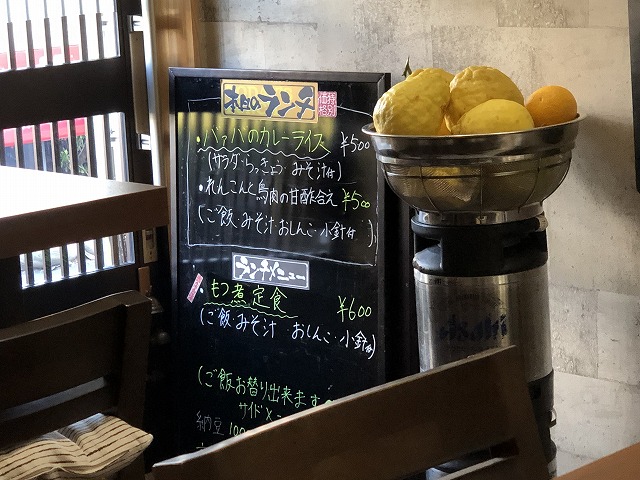 本日のランチ
特別価格
・バッハのカレーライス ¥500
(サラダ・らっきょう みそ汁付)
・れんこんと鳥肉の甘酢合え ¥500
(ご飯・みそ汁 おしんこ・小鉢付)
ランチメニュー
・もつ煮定食 ¥600
(ご飯・みそ汁 おしんこ・小鉢付)
(ご飯お替り出来ます
サイドメ
納豆